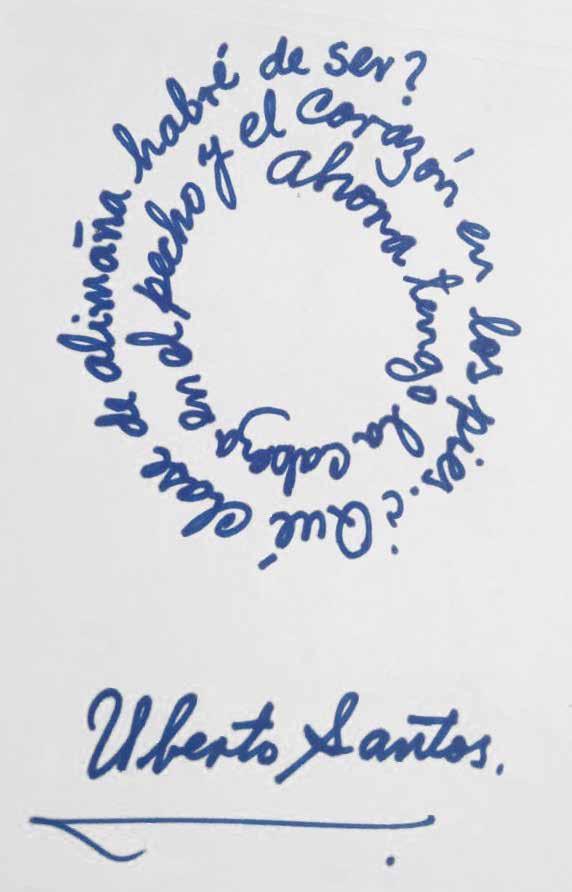 Ahora tengo la cabeza en el pecho y el corazón en los pies. ¿Qué clase de alimaña habré de ser?
Uberto Santos.